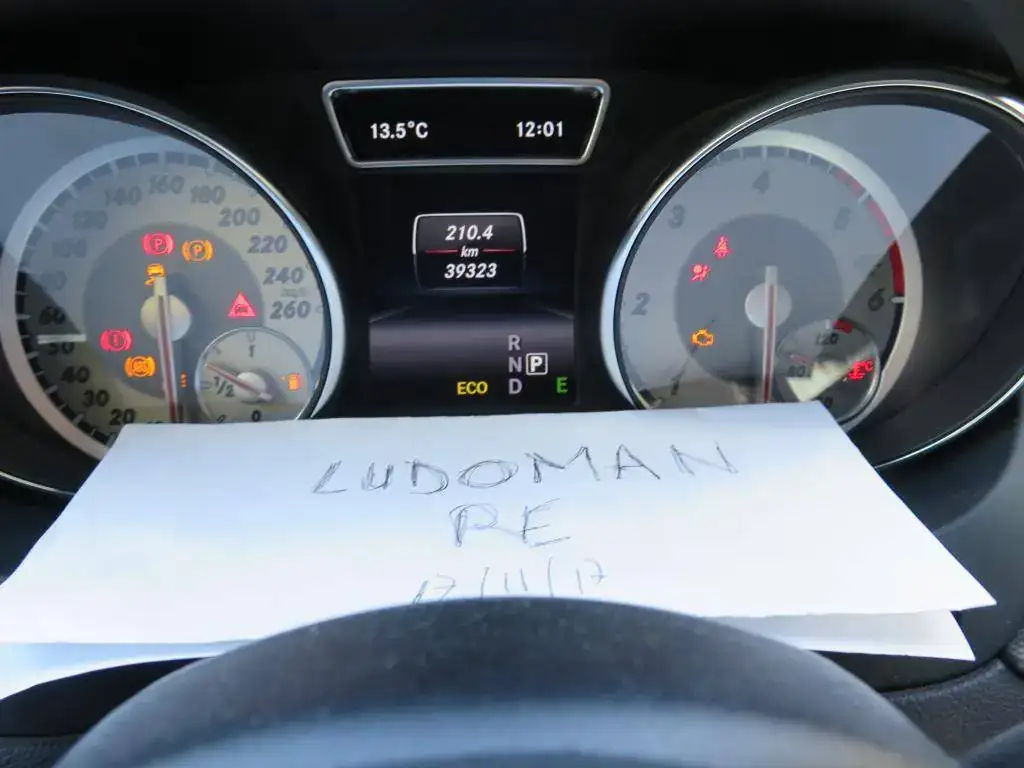 13.5°C 12:01
210.4
km
39323
R
N P
D
ECO E
20
30
40
50
60
140
160
180
200
220
240
260
km/h
1
1/2
0
1
2
3
4
5
6
120
80
°C
ABS
LUDOMAN
RE
17/11/17